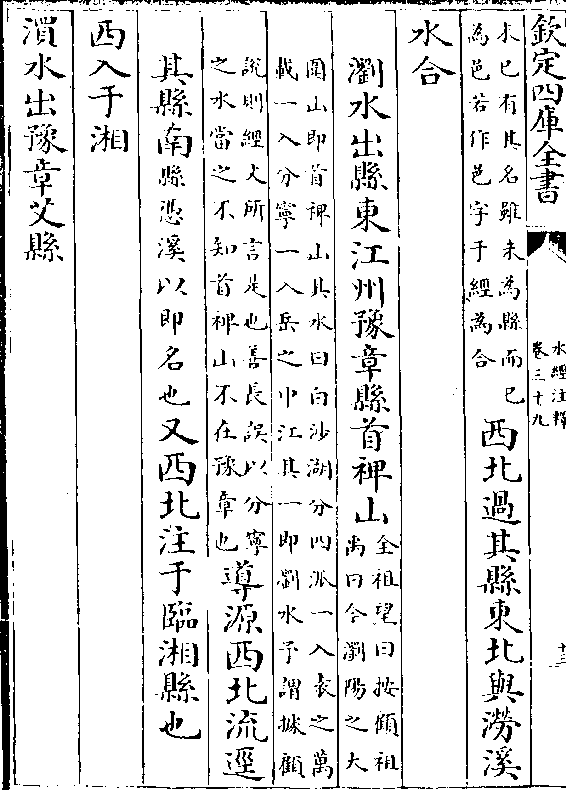 欽定四庫全書
水經注釋
卷三十九
十三
水已有其名雖未為縣而已
為邑若作邑字于經為合
西北過其縣東北與澇溪
水合
瀏水出縣東江州豫章縣首禆山
全祖望曰按顧祖
禹曰今瀏陽之大
圍山即首禆山其水曰白沙湖分四派一入袁之萬
載一入分寧一入岳之中江其一即瀏水予謂據顧
說則經文所言是也善長誤以分寧
之水當之不知首禆山不在豫章也
導源西北流逕
其縣南縣憑溪以即名也又西北注于臨湘縣也
西入于湘
𣿰水出豫章艾縣